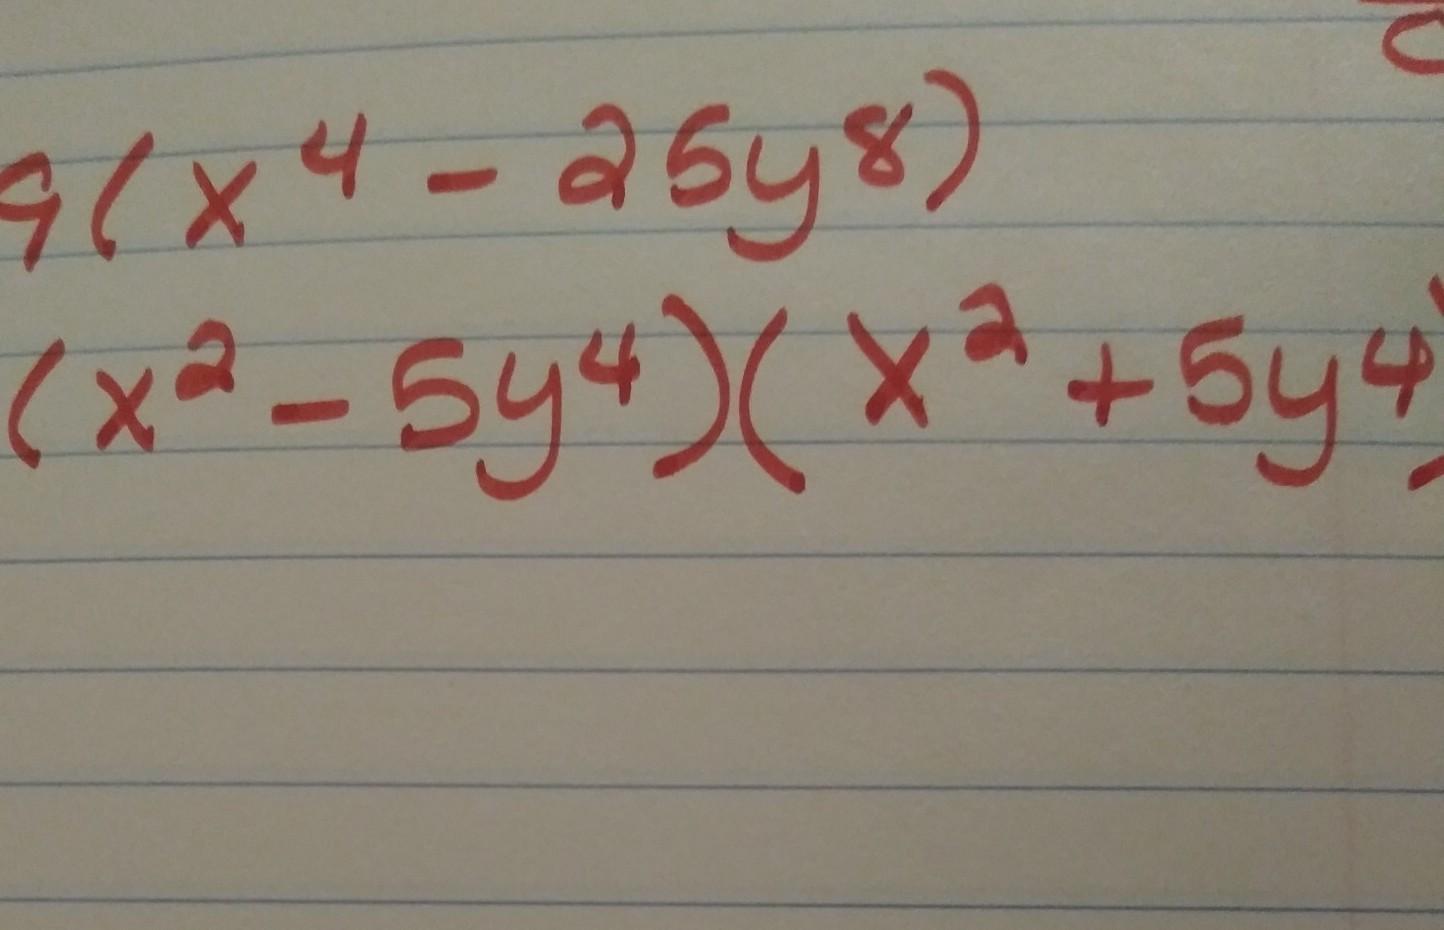 9(x⁴ - 25y⁸)
(x² - 5y⁴)(x² + 5y⁴)